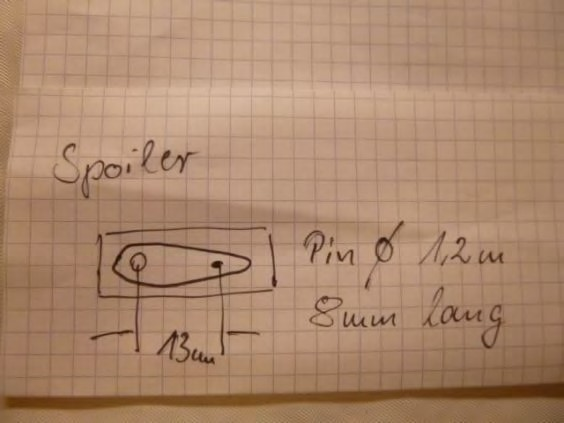 Spoiler
Pin Ø 1,2m
8mm lang
13cm